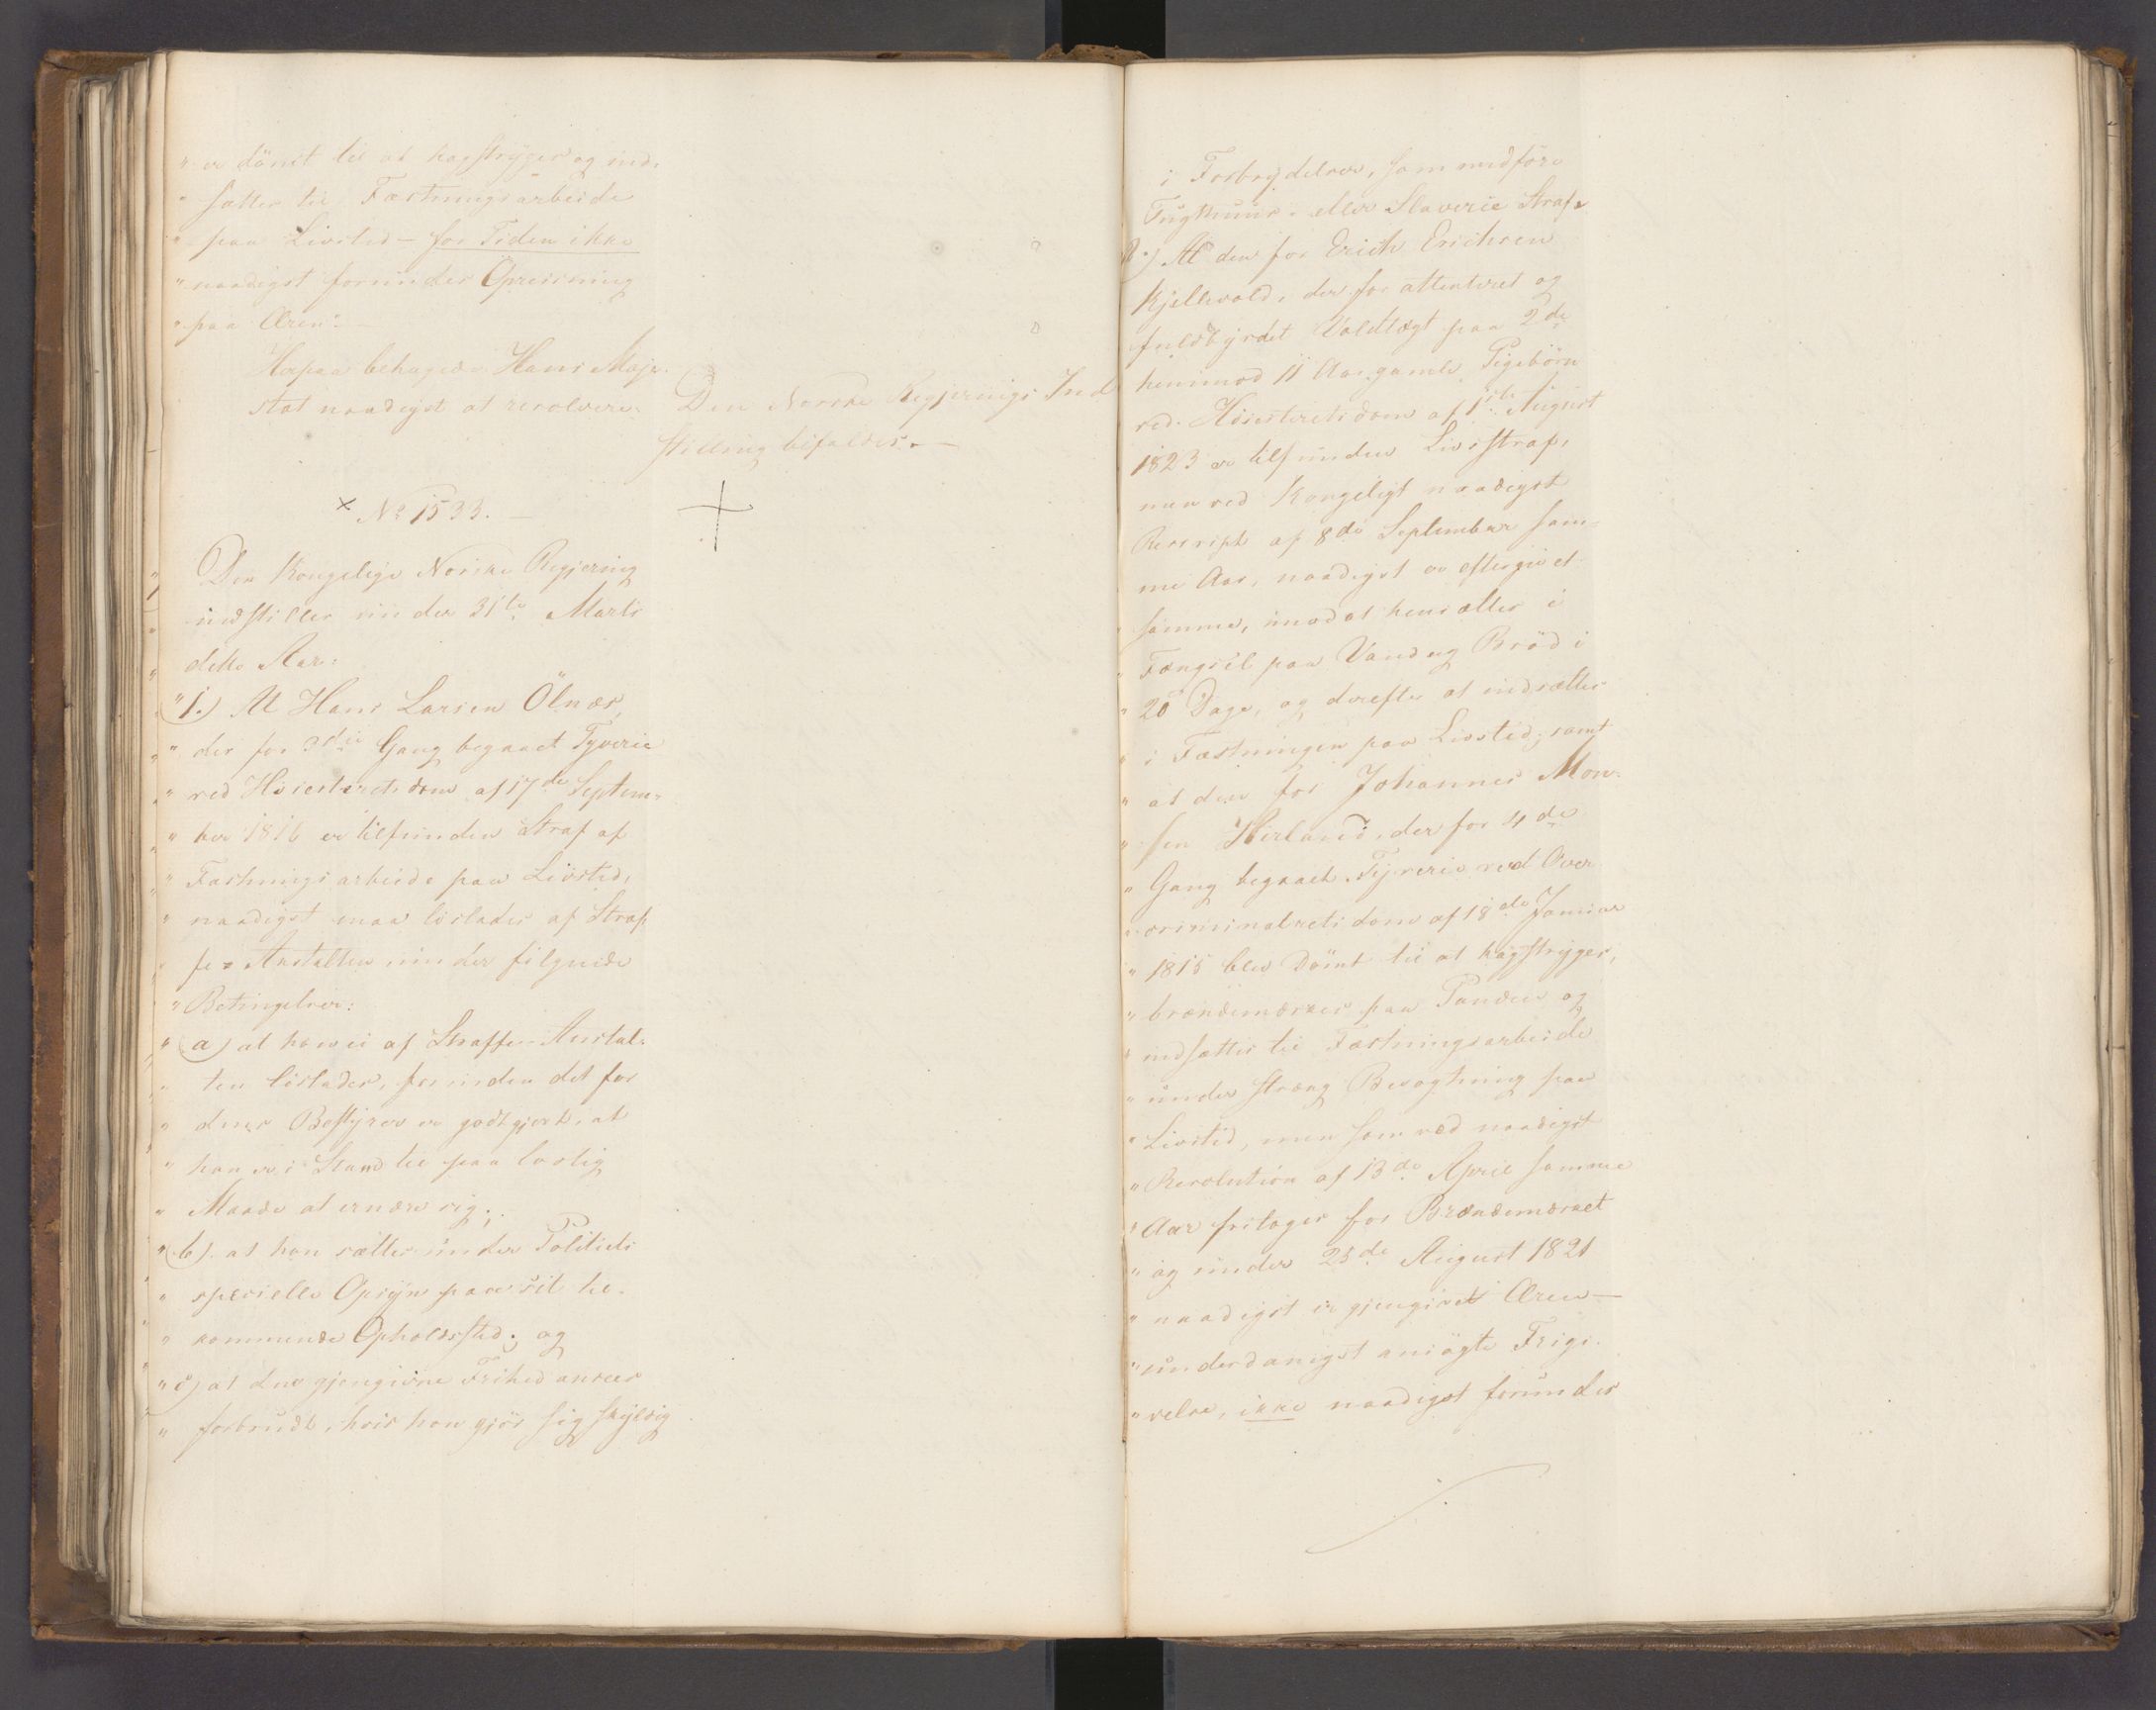 " er dömt til at kagstryges og ind-
" sættes til Fæstningsarbeide
" paa Livstid – for Tiden ikke
" naadigst forundes Opreisning
" paa Æren" –
Herpaa behagede Hans Maje-
stæt naadigst at resolvere:
Den Norske Regjerings Ind
stilling bifaldes. –
× No 1533. –
Den Kongelige Norske Regjering
indstiller under 31te Marts
dette Aar:
" 1.) At Hans Larsen Ölnæs,
" der for 3die Gang begaaet Tyverie
" ved Höiesteretsdom af 17de Septem-
" ber 1816 er tilfunden Straf af
" Fæstningsarbeide paa Livstid,
" naadigst maa löslades af Straf-
" fe-Anstalten under fölgende
" Betingelser:
" a) at han ei af Straffe-Anstal-
" ten löslades, forinden det for
" dens Bestyrer er godtgjort, at
" han er i Stand til paa lovlig
" Maade at ernære sig;
" b) at han sættes under Politiets
" specielle Opsyn paa sit til-
" kommende Opholdssted; og
" c) at den gjengivne Frihed ansees
" forbrudt, hvis han gjör sig skyldig
i Forbrydelser, som medföre
Tugthuus- eller Slaverie Straf.
2.) At den for Erich Erichsen
Kjellevold, der for attenteret og
fuldbyrdet Voldtægt paa 2de
henimod 11 Aar gamle Pigebörn
ved Höiesteretsdom af 1ste August
1823 er tilfunden Livsstraf,
men ved Kongeligt naadigst
Rescript af 8de September sam-
me Aar, naadigst er eftergivet
" samme, imod at hensættes i
" Fængsel paa Vand og Bröd i
" 20 Dage, og derefter at indsættes
" i Fæstningen paa Livstid; samt
" at den for Johannes Mon-
" sen Herland, der for 4de
" Gang begaaet Tyverie ved Over
" criminalretsdom af 18de Januar
" 1815 blev Dömt til at kagstryges,
" brændemærkes paa Panden og
" indsættes til Fæstningsarbeide
" under stræng Bevogtning paa
" Livstid, men som ved naadigst
" Resolution af 13de April samme
" Aar fritoges for Brændemærket
" og under 25de August 1821
" naadigst er gjengivet Æren –
" underdanigst ansögte Frigi-
" velse, ikke naadigst forundes